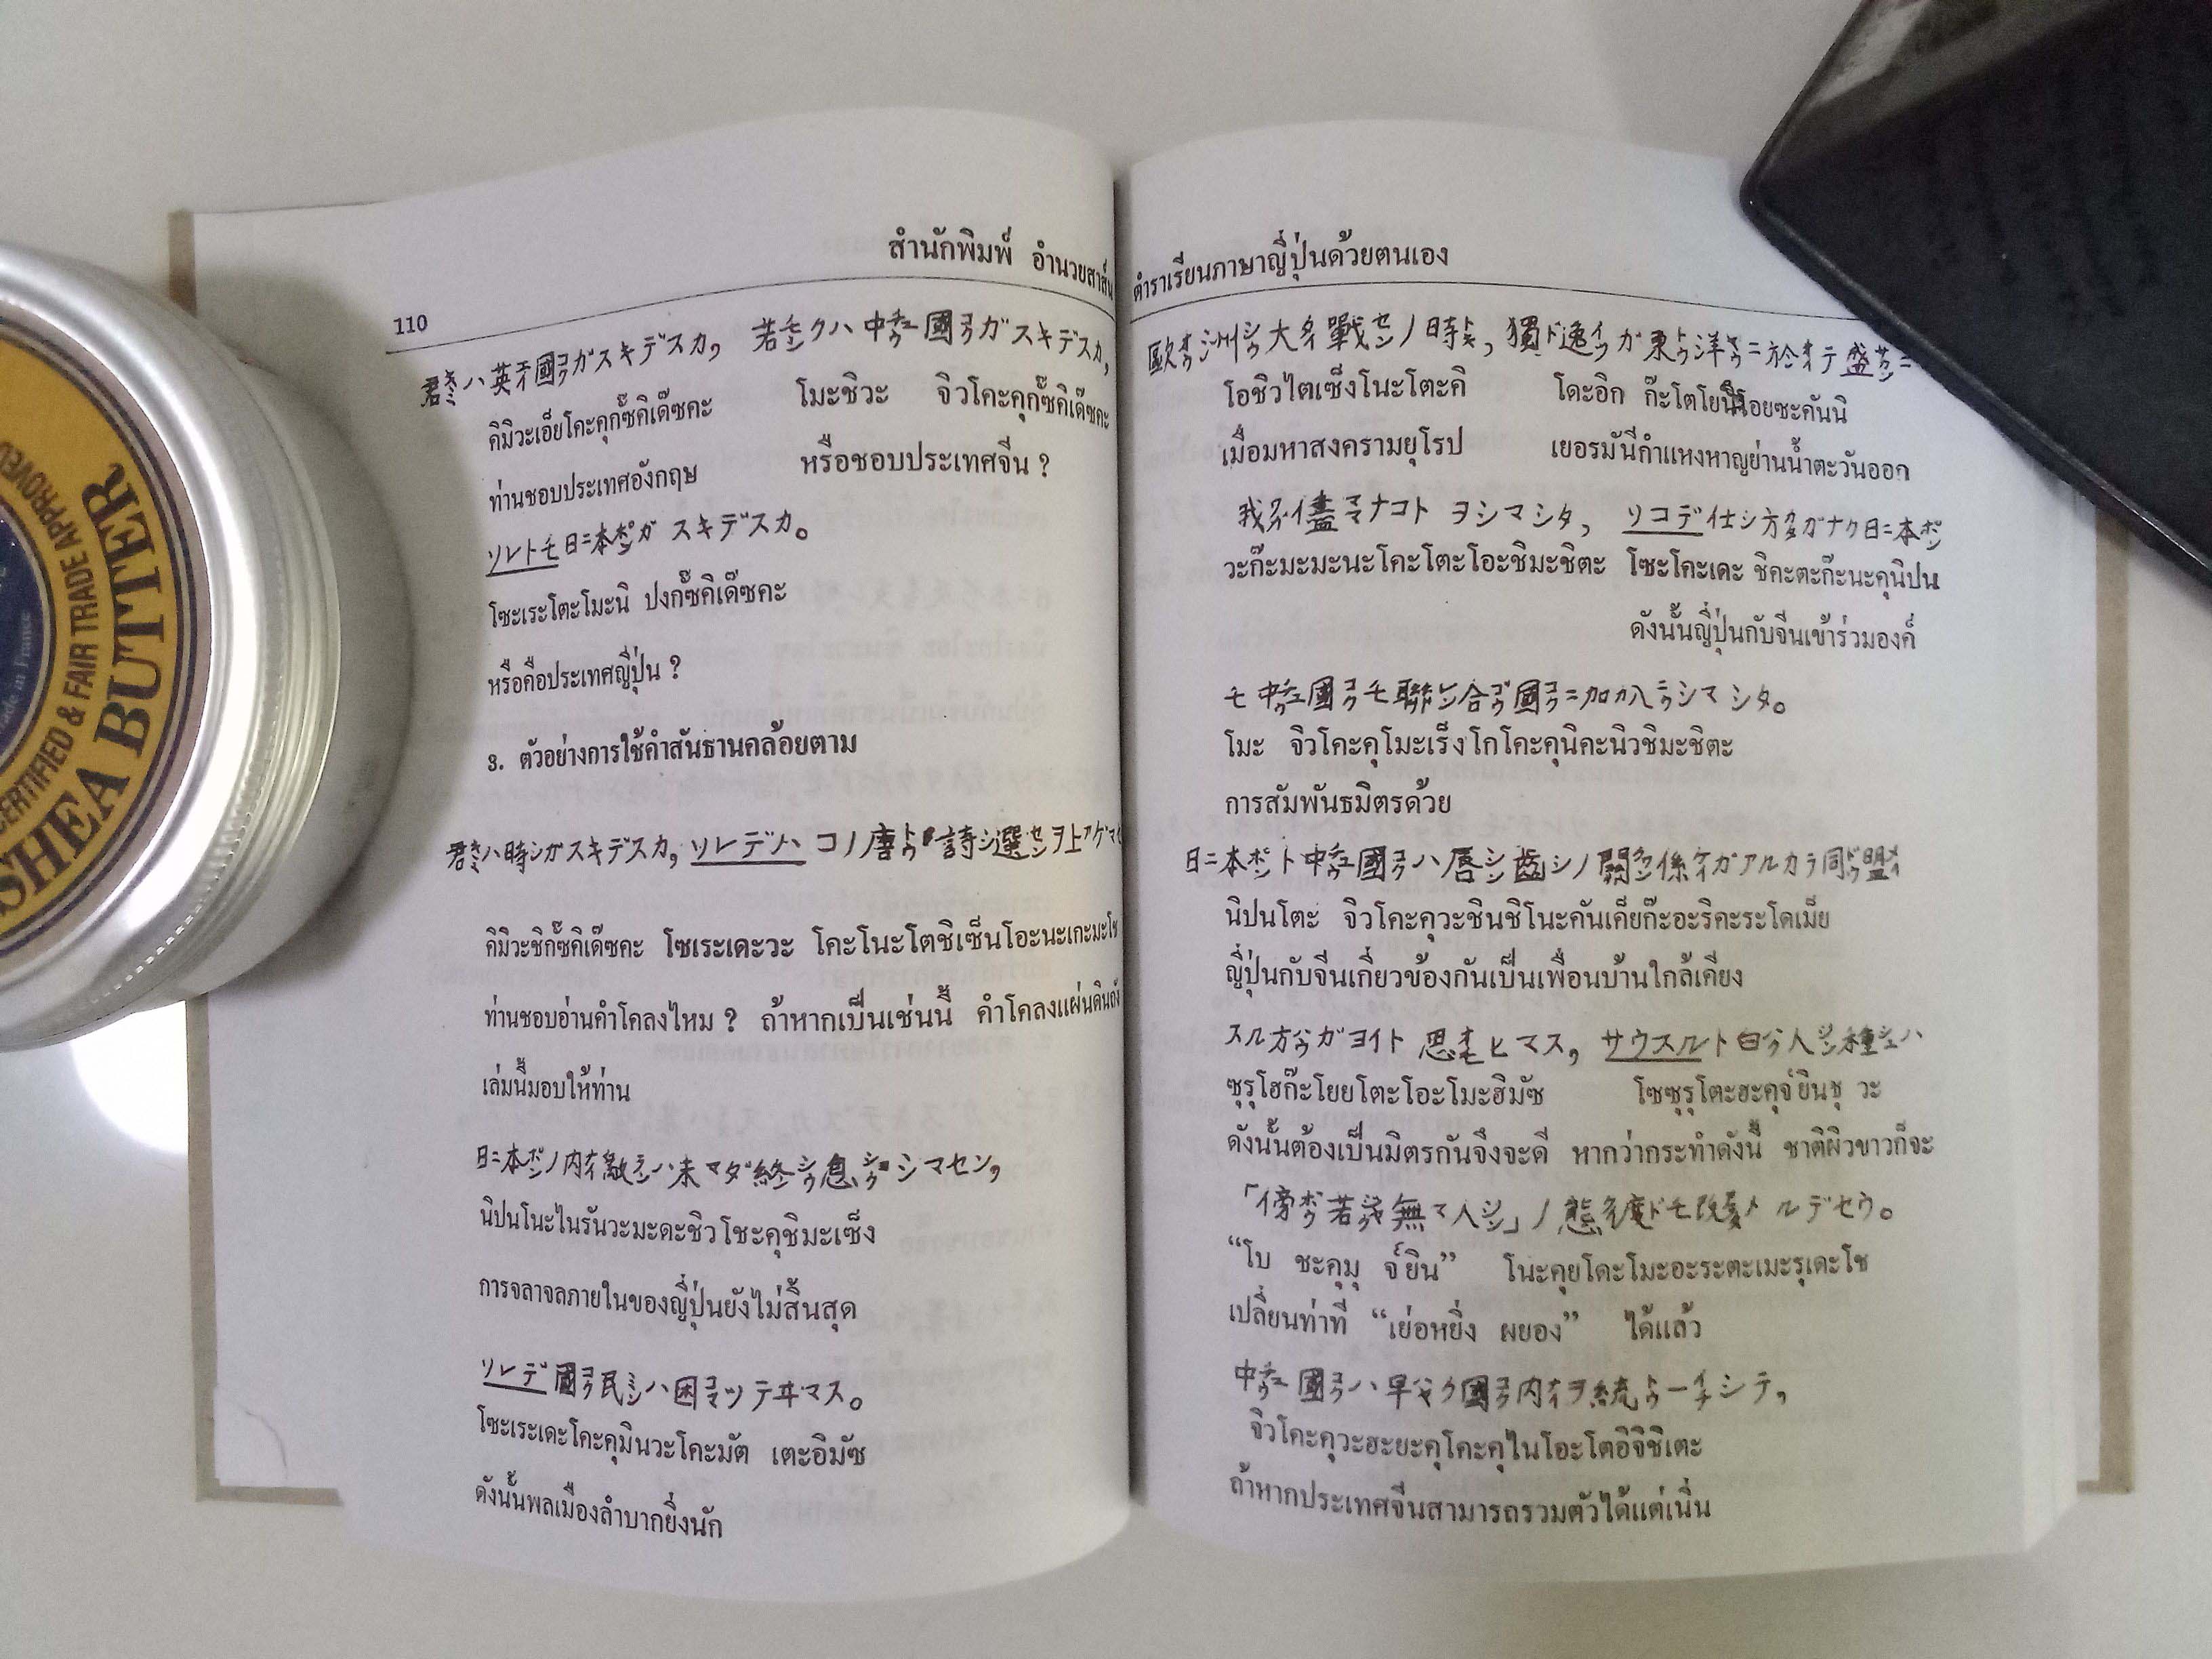 สำนักพิมพ์ อำนวยสาส์น
110
君キミハ英エイ國コクガスキデスカ, 若モシクハ中チュウ國コクガスキデスカ,
คิมิวะเอ็ยโคะคุกั๊ซคิเด๊ซคะ โมะชิวะ จิวโคะคุกั๊ซคิเด๊ซคะ
ท่านชอบประเทศอังกฤษ หรือชอบประเทศจีน ?
ソレトモ日ニ本ポンガ スキデスカ。
โซะเระโตะโมะนิ ปงกั๊ซคิเด๊ซคะ
หรือคือประเทศญี่ปุ่น ?
3. ตัวอย่างการใช้คำสันธานคล้อยตาม
君キミハ時シガスキデスカ, ソレデハ コノ唐トウ詩シ選センヲ上アゲマ
คิมิวะชิกั๊ซคิเด๊ซคะ โซเระเดะวะ โคะโนะโตชิเซ็นโอะนะเกะมะโช
ท่านชอบอ่านคำโคลงไหม ? ถ้าหากเป็นเช่นนี้ คำโคลงแผ่นดินถัง
เล่มนี้มอบให้ท่าน
日ニ本ポンノ内ナイ敵ランハ未マダ終シウ息シマセン,
นิปนโนะไนรันวะมะดะชิวโซะคุชิมะเซ็ง
การจลาจลภายในของญี่ปุ่นยังไม่สิ้นสุด
ソレデ國コク民ミンハ困コマツテヰマス。
โซะเระเดะโคะคุมินวะโคะมัต เตะอิมัซ
ดังนั้นพลเมืองลำบากยิ่งนัก
ตำราเรียนภาษาญี่ปุ่นด้วยตนเอง
歐オウ洲シウ大タイ戰センノ時トキ, 獨ド逸イツガ東トウ洋ヨウニ於オイテ盛サカンニ
โอชิวไตเซ็งโนะโตะคิ โดะอิก ก๊ะโตโยนิโอยซะคันนิ
เมื่อมหาสงครามยุโรป เยอรมันีกำแหงหาญย่านน้ำตะวันออก
我ワガ儘ママナコト ヲシマシタ, ソコデ仕シ方カタガナク日ニ本ポン
วะก๊ะมะมะนะโคะโตะโอะชิมะชิตะ โซะโคะเดะ ชิคะตะก๊ะนะคุนิปน
ดังนั้นญี่ปุ่นกับจีนเข้าร่วมองค์
モ 中チュウ國コクモ聯レン合ゴウ國コクニ加カ入ニウシマシタ。
โมะ จิวโคะคุโมะเร็งโกโคะคุนิคะนิวชิมะชิตะ
การสัมพันธมิตรด้วย
日ニ本ポント中チュウ國コクハ唇シン齒シノ關カン係ケイガアルカラ同ドウ盟メイ
นิปนโตะ จิวโคะคุวะชินชิโนะคันเค็ยก๊ะอะริคะระโดเม็ย
ญี่ปุ่นกับจีนเกี่ยวข้องกันเป็นเพื่อนบ้านใกล้เคียง
スル方ホウガヨイト 思オモヒマス, サウスルト白ハク人ジン種シュハ
ซุรุโฮก๊ะโยยโตะโอะโมะฮิมัซ โซซุรุโตะฮะคุจ์ยินชุ วะ
ดังนั้นต้องเป็นมิตรกันจึงจะดี หากว่ากระทำดังนี้ ชาติผิวขาวก็จะ
「傍ボウ若ジャク無ム人ジン」ノ態度ドモ改メルデセウ。
“โบ ชะคุมุ จ์ยิน” โนะคุยโดะโมะอะระตะเมะรุเดะโช
เปลี่ยนท่าที “เย่อหยิ่ง ผยอง” ได้แล้ว
中チュウ國コクハ早ハヤク國コク内ナイヲ統トウ一イチシテ,
จิวโคะคุวะฮะยะคุโคะคุไนโอะโตอิจิชิเตะ
ถ้าหากประเทศจีนสามารถรวมตัวได้แต่เนิ่น
CERTIFIED & FAIR TRADE APPROVED
SHEA BUTTER